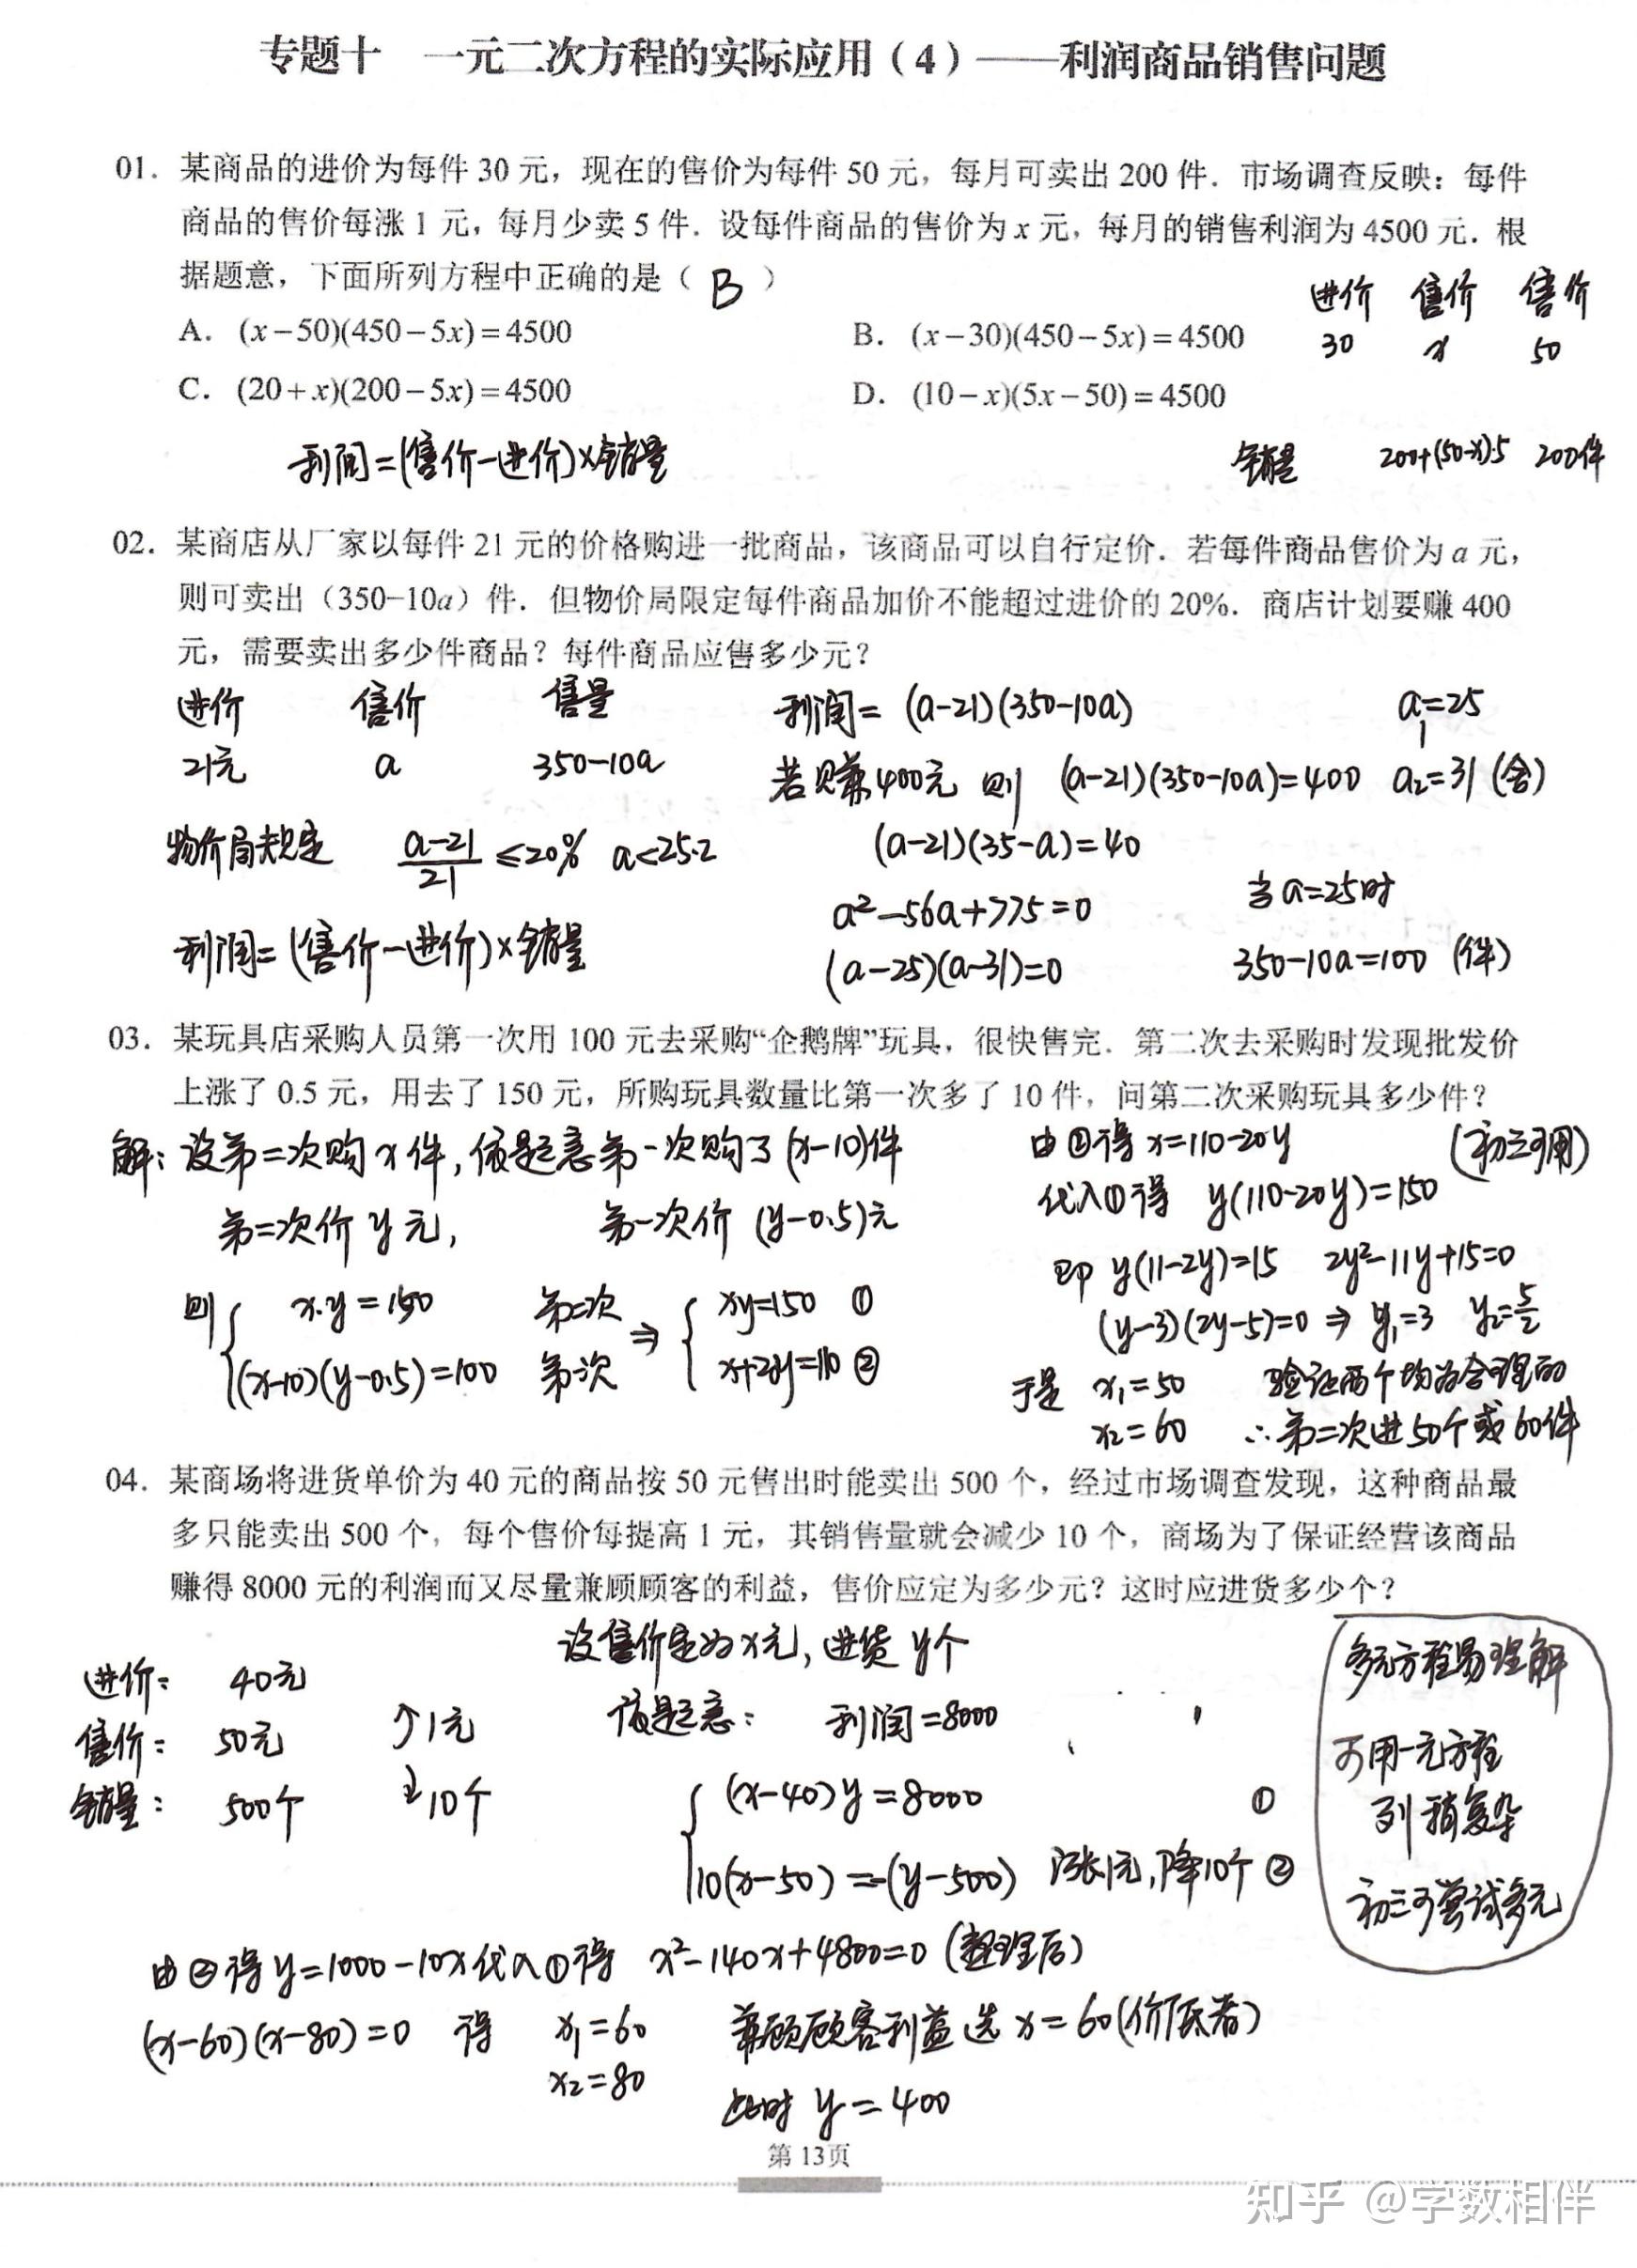 专题十 一元二次方程的实际应用（4）——利润商品销售问题
01. 某商品的进价为每件 30 元，现在的售价为每件 50 元，每月可卖出 200 件．市场调查反映：每件
商品的售价每涨 1 元，每月少卖 5 件．设每件商品的售价为 x 元，每月的销售利润为 4500 元．根
据题意，下面所列方程中正确的是（ B ）
进价 售价 售价
A. (x－50)(450－5x)＝4500 B. (x－30)(450－5x)＝4500
30 x 50
C. (20＋x)(200－5x)＝4500 D. (10－x)(5x－50)＝4500
利润=(售价-进价)×销量
销量 200+(50-x)·5 200件
02. 某商店从厂家以每件 21 元的价格购进一批商品，该商品可以自行定价．若每件商品售价为 a 元，
则可卖出（350-10a）件．但物价局限定每件商品加价不能超过进价的 20%．商店计划要赚 400
元，需要卖出多少件商品？每件商品应售多少元？
进价 售价 售量
21元 a 350-10a
物价局规定 a-21/21 ≤20% a<25.2
利润=(售价-进价)×销量
利润=(a-21)(350-10a)
若赚400元 则 (a-21)(350-10a)=400
(a-21)(35-a)=40
a²-56a+775=0
(a-25)(a-31)=0
a₁=25
a₂=31(舍)
当a=25时
350-10a=100 (件)
03. 某玩具店采购人员第一次用 100 元去采购“企鹅牌”玩具，很快售完．第二次去采购时发现批发价
上涨了 0.5 元，用去了 150 元，所购玩具数量比第一次多了 10 件，问第二次采购玩具多少件？
解：设第二次购x件，依题意第一次购了(x-10)件
第二次价y元， 第一次价(y-0.5)元
则{ x·y=150 第二次 ⇒ { xy=150 ①
(x-10)(y-0.5)=100 第一次 x+20y=110 ②
由②得 x=110-20y (初三可用)
代入①得 y(110-20y)=150
即 y(11-2y)=15 2y²-11y+15=0
(y-3)(2y-5)=0 ⇒ y₁=3 y₂=5/2
于是 x₁=50 验证两个均为合理的
x₂=60 ∴第二次进50个或60件
04. 某商场将进货单价为 40 元的商品按 50 元售出时能卖出 500 个，经过市场调查发现，这种商品最
多只能卖出 500 个，每个售价每提高 1 元，其销售量就会减少 10 个，商场为了保证经营该商品
赚得 8000 元的利润而又尽量兼顾顾客的利益，售价应定为多少元？这时应进货多少个？
设售价定为x元，进货y个
进价： 40元
售价： 50元 ↑1元
销量： 500个 ↓10个
依题意： 利润=8000
{ (x-40)y=8000 ①
10(x-50)=-(y-500) 涨1元，降10个 ②
多元方程易理解
可用一元方程
列稍复杂
初三可尝试多元
由②得y=1000-10x代入①得 x²-140x+4800=0 (整理后)
(x-60)(x-80)=0 得 x₁=60 兼顾顾客利益选x=60(价低者)
x₂=80
此时 y=400
第 13页
知乎 @学数相伴